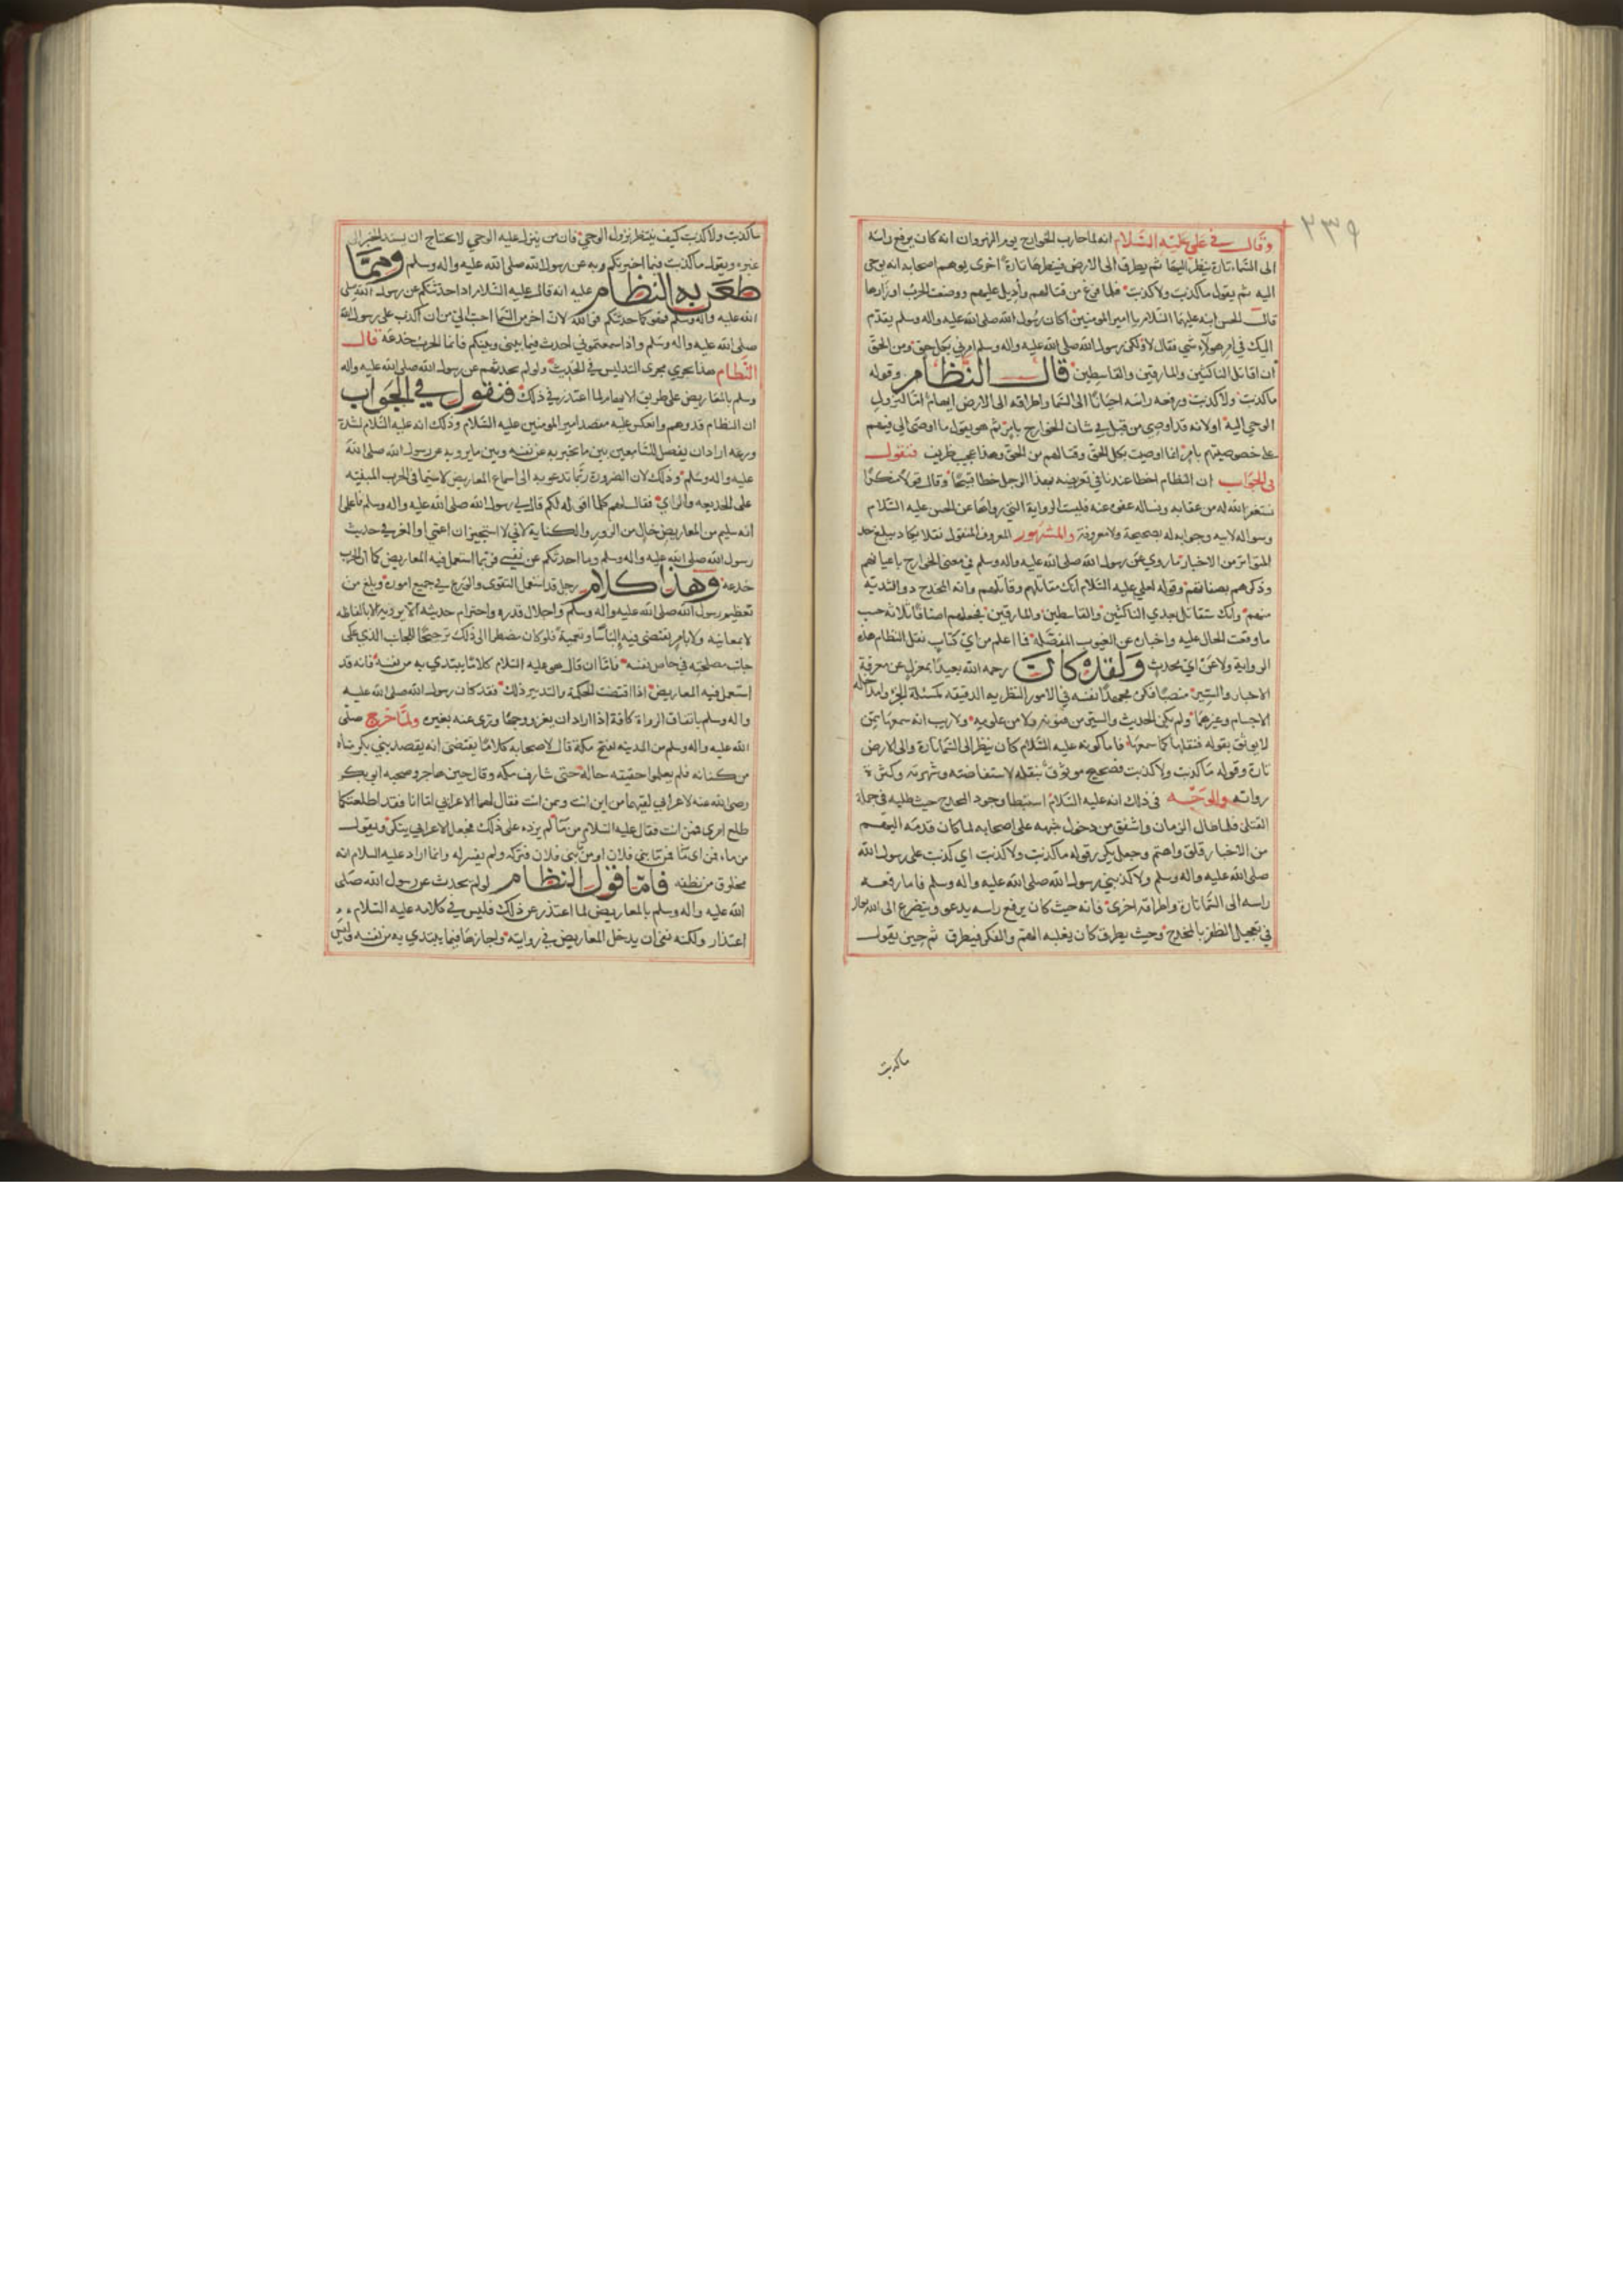 ٢٣٩
وقال في علي عليه السلام انه لما حارب الخوارج يوم النهروان انه كان يرفع راسه
الى السماء تارة ينظر اليها ثم يطرق الى الارض فينظرها تارة اخرى يوهم اصحابه انه يوحى
اليه ثم يقول ماكذبت ولاكذبت فلما فرغ من قتالهم وأديل عليهم ووضعت الحرب اوزارها
قال الحسن ابنه عليهما السلام يا امير المومنين اكان رسول الله صلى الله عليه واله وسلم يقدم
اليك في امر هولاء شي فقال لا ولكن رسول الله صلى الله عليه واله وسلم امرني بكل حق ومن الحق
ان اقاتل الناكثين والمارقين والقاسطين قال النظام وقوله
ماكذبت ولاكذبت ورفعه راسه احيانا الى السما واطراقه الى الارض ايهام اما لنزول
الوحي اليه اولانه قد اوصي من قبل في شان الخوارج بامر ثم هو يقول ما اوصى الي فيهم
على خصوصيتهم بامر انما اوصيت بكل الحق وقتالهم من الحق وهذا عجيب ظريف فنقول
في الجواب ان النظام اخطا عندنا في تعريضه بهذا الرجل خطا قبيحا وقال قولا منكرا
نستغفر الله له من عقابه ونساله عفوه عنه فليست الرواية التي رواها عن الحسن عليه السلام
وسواله لابيه وجوابه له بصحيحة ولا معروفة والمشهور المعروف المنقول نقلا يكاد يبلغ حد
المتواتر من الاخبار ما روي عن رسول الله صلى الله عليه واله وسلم في معنى الخوارج باعيانهم
وذكرهم بصفاتهم وقوله لعلي عليه السلام انك مقاتلهم وقاتلهم وانه المخدج ذو الثدية
منهم وانك ستقاتل بعدي الناكثين والقاسطين والمارقين فجعلهم اصنافا ثلاثة حسب
ما وقعت الحال عليه واخباره عن الغيوب المفصلة فما اعلم من اي كتاب نقل النظام هذه
الرواية ولا عن اي محدث ولقد كان رحمه الله بعيدا بمعزل عن معرفة
الاخبار والسير منصبا فكره مجهدا نفسه في الامور النظريه الدقيقه كمسئلة الجزء ومداخلة
الاجسام وغيرهما ولم يكن الحديث والسير من فنونه ولا من علومه ولا ريب انه سمعها ممن
لا يوثق بقوله فنقلها كما سمعها فاما كونه عليه السلام كان ينظر الى السما تارة والى الارض
تارة وقوله ماكذبت ولاكذبت فصحيح موثوق بنقله لاستفاضته وشهرته وكثرة
رواته والوجه في ذلك انه عليه السلام استبطا وجود المخدج حيث طلبه في جملة
القتلى فلما طال الزمان واشفق من دخول شبهة على اصحابه لما كان قدمه اليهم
من الاخبار قلق واهتم وجعل يكرر قوله ماكذبت ولاكذبت اي كذبت على رسول الله
صلى الله عليه واله وسلم ولا كذبني رسول الله صلى الله عليه واله وسلم فاما رفعه
راسه الى السما تارة واطراقه اخرى فانه حيث كان يرفع راسه يدعو ويتضرع الى الله تعالى
في تعجيل الظفر بالمخدج وحيث يطرق كان يغلبه الهم والفكر فيطرق ثم حين يقول
ماكذبت
ماكذبت ولاكذبت كيف ينتظر نزول الوحي فان من ينزل عليه الوحي لا يحتاج ان يسند الخبر الى
غيره ويقول ماكذبت فيما اخبرتكم به عن رسول الله صلى الله عليه واله وسلم ومما
طعن به النظام عليه انه قال عليه السلام اذا حدثتكم عن رسول الله صلى
الله عليه واله وسلم فهو كما حدثتكم فوالله لان اخر من السما احب الي من ان اكذب على رسول الله
صلى الله عليه واله وسلم واذا سمعتموني احدث فيما بيني وبينكم فانما الحرب خدعة قال
النظام هذا يجري مجرى التدليس في الحديث ولو لم يحدثهم عن رسول الله صلى الله عليه واله
وسلم بالمعاريض على طريق الايهام لما اعتذر في ذلك فنقول في الجواب
ان النظام قد وهم وانعكس عليه مقصد امير المومنين عليه السلام وذلك انه عليه السلام لشدة
ورعه اراد ان يفصل للسامعين بين ما يخبر به عن نفسه وبين ما يرويه عن رسول الله صلى الله
عليه واله وسلم وذلك لان الضرورة ربما تدعو به الى استماع المعاريض لا سيما في الحرب المبنية
على الخديعه والراي فقال لهم كلما اقول لكم قال لي رسول الله صلى الله عليه واله وسلم فاعلموا
انه سليم من المعاريض خال من الرموز والكناية لاني لا استجيز ان اعمي او الغز في حديث
رسول الله صلى الله عليه واله وسلم وما احدثكم عن نفسي فربما استعمل فيه المعاريض كما ان الحرب
خدعة وهذا كلام رجل قد استعمل التقوى والورع في جميع اموره وبلغ من
تعظيم رسول الله صلى الله عليه واله وسلم واجلال قدره واحترام حديثه الا يرويه الا بالفاظه
لا بمعانيه ولا بامر يقتضي فيه الباسا وتعمية فلو كان مضطرا الى ذلك ترجيحا للجانب الذي على
جانب مصلحته في خاص نفسه فاما ان قال هو عليه السلام كلاما يبتدي به من نفسه فانه قد
استعمل فيه المعاريض اذا اقتضت الحكمة والتدبير ذلك فقد كان رسول الله صلى الله عليه
واله وسلم باتفاق الرواة كافة اذا اراد ان يغزو وجها ورى عنه بغيره ولما خرج صلى
الله عليه واله وسلم من المدينه لفتح مكة قال لاصحابه كلاما يقتضي انه يقصد بني بكر بن عبد مناه
من كنانه فلم يعلموا حقيقه حاله حتى شارف مكه وقال حين هاجر وصحبه ابو بكر
رضي الله عنه لاعرابي لقيهما من اين انت وممن انت فقال لهما الاعرابي اما انا فقد اطلعتكما
طلع امري فمن انت فقال عليه السلام من ما لم يزده على ذلك فجعل الاعرابي يتفكر ويقول
من ماء فمن اي ما فمن ما بني فلان او من ما بني فلان فتركه ولم يفسر له وانما اراد عليه السلام انه
مخلوق من نطفه فاما قول النظام لو لم يحدث عن رسول الله صلى
الله عليه واله وسلم بالمعاريض لما اعتذر عن ذلك فليس في كلامه عليه السلام
اعتذار ولكنه نفى ان يدخل المعاريض في روايته واجازها فيما يبتدي به من نفسه وليس